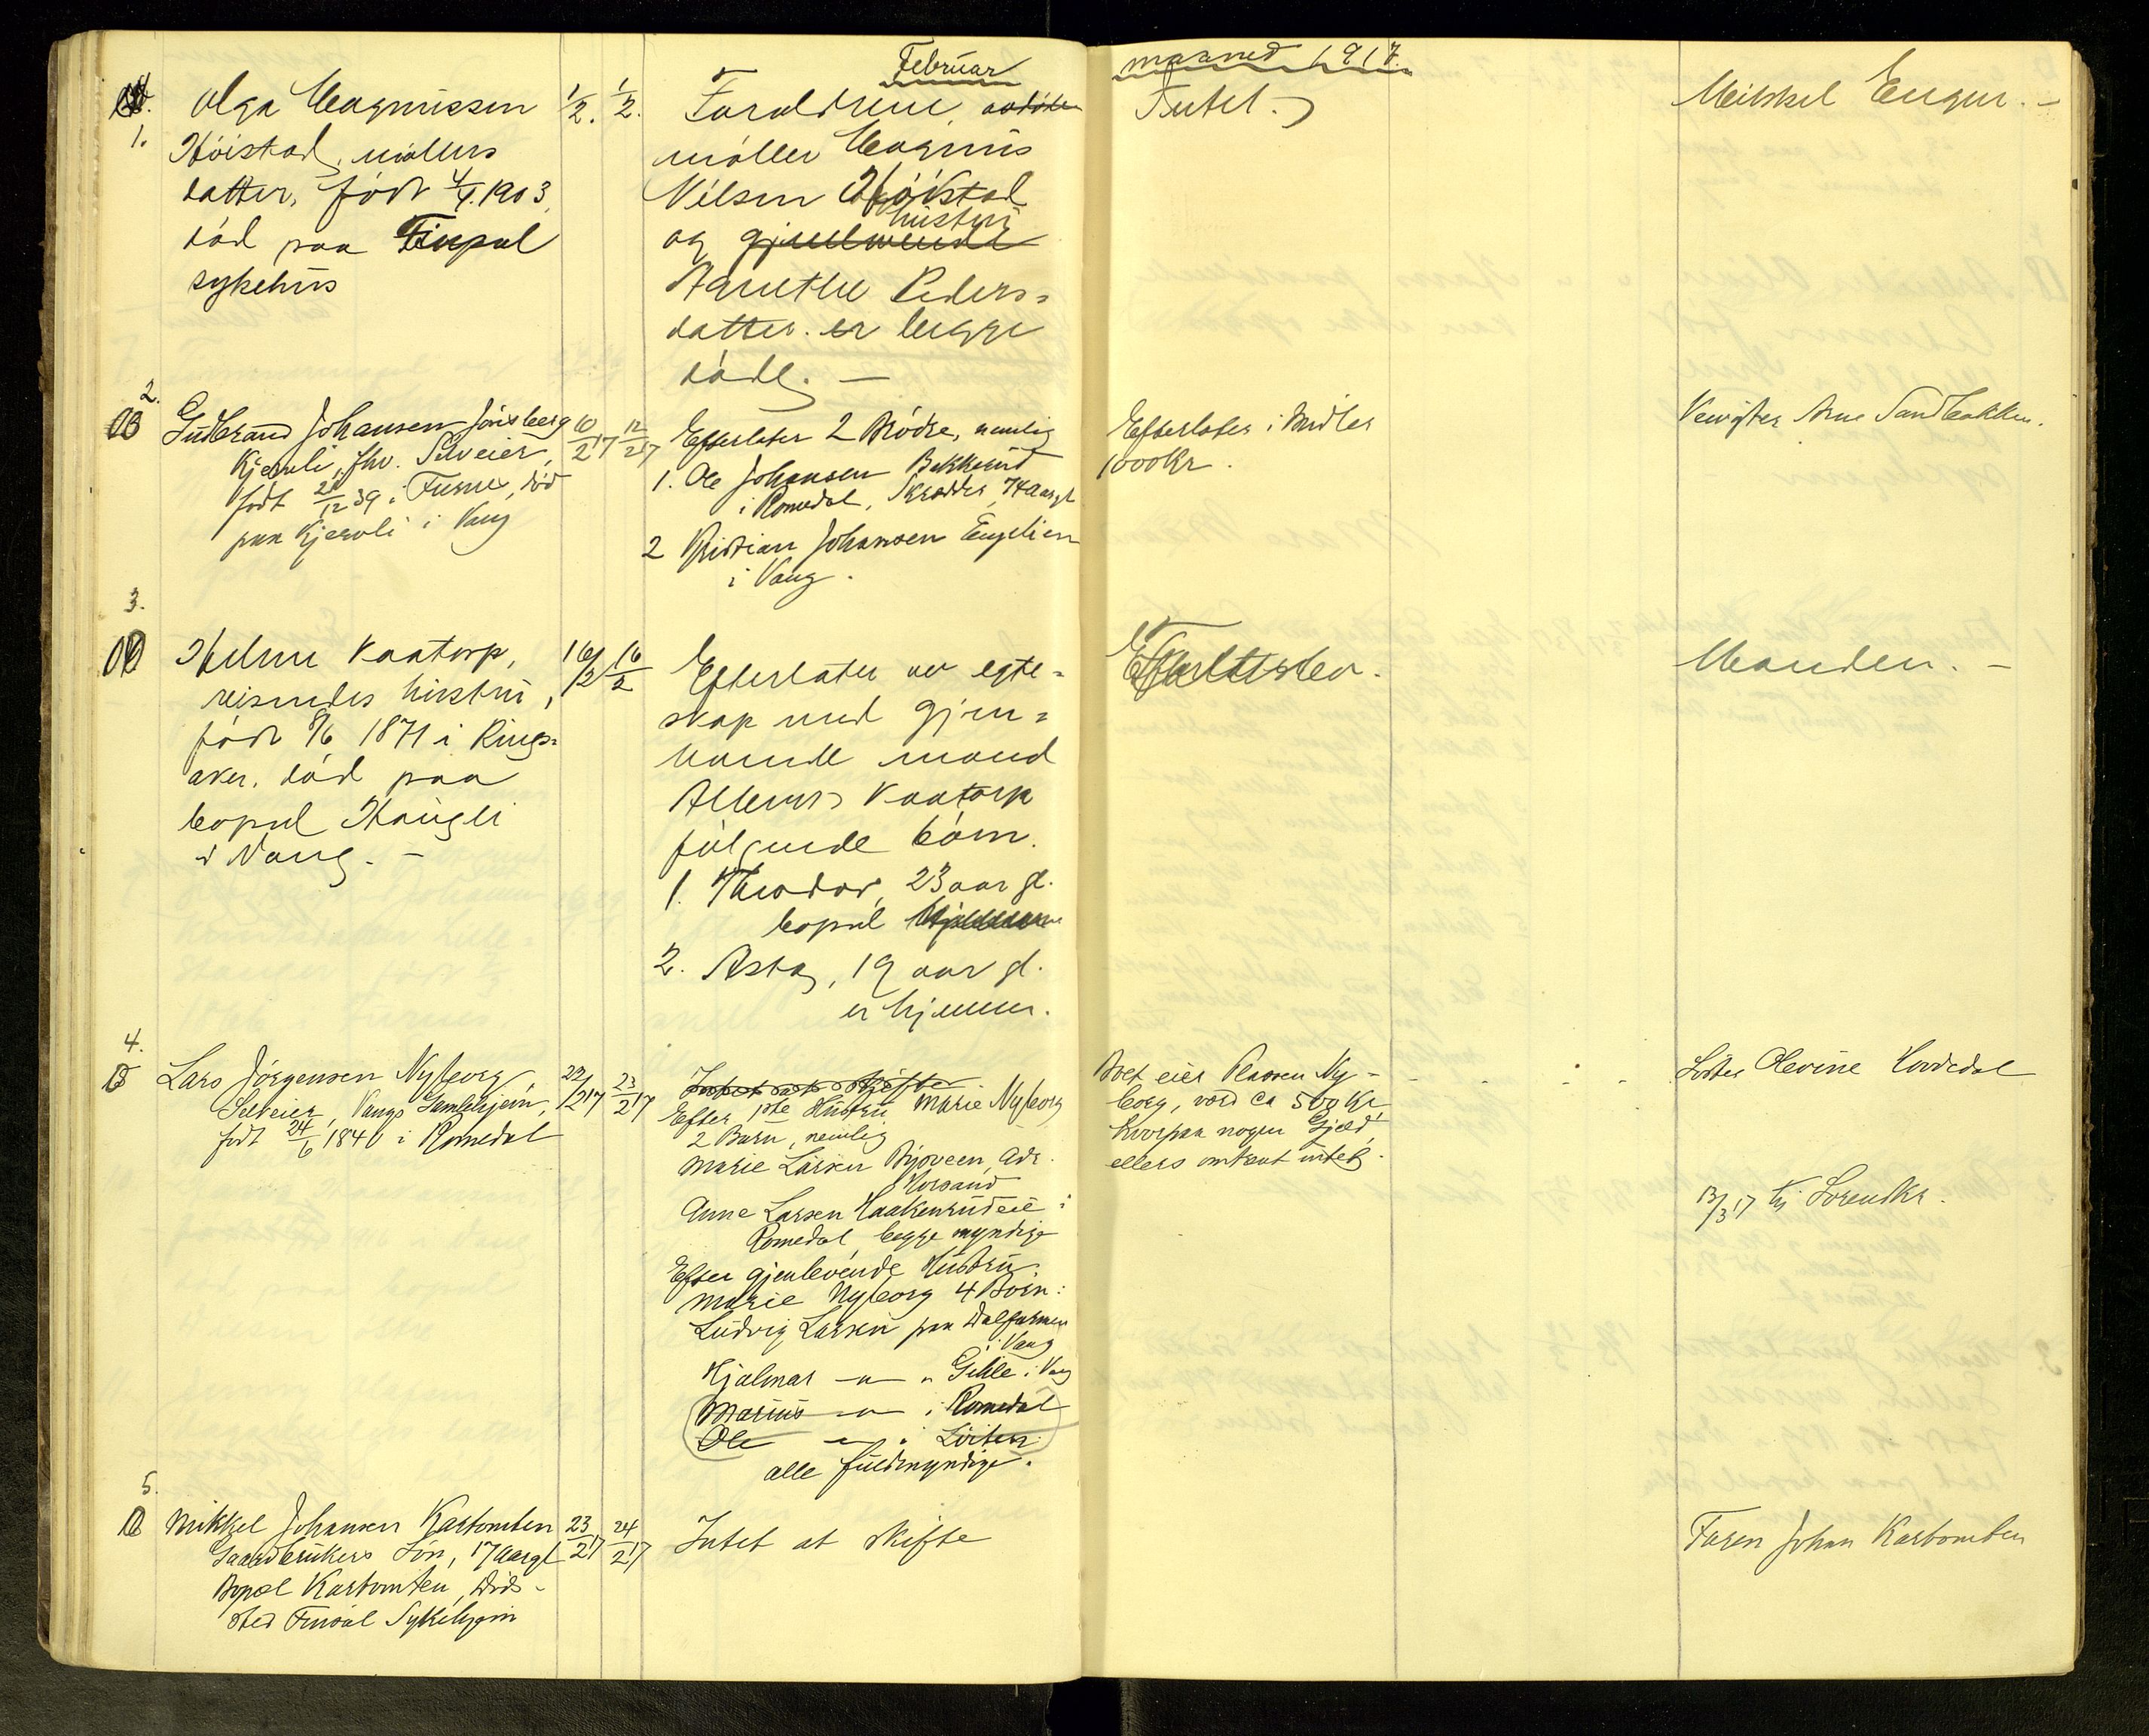 Februar maaned 1917.
1.
Olga Magnussen
Höistad, möllers
datter, födt 4/4. 1903,
död paa
sykehus
1/2. 1/2.
Foreldrene,
möller Magnus
Nilsen Höistad
og gjenlevende hustru
Agnethe Peders=
datter. er begge
döde. —
Intet.
Mikkel Enger. —
2.
Gudbrand Johansen Jönsberg
Kjernli, fhv. Selveier,
födt 21/12 39 i Furnes, död
paa Kjernli i Vang
10/2 17 12/2 17
Efterlater 2 Brödre, nemlig
1. Ole Johansen Bekkerud
i Romedal, Skrædder, 74 aargl
2 Kristian Johansen Engelien
i Vang.
Efterlater i Midler
1000 Kr.
Arne Sandbakken.
3.
Helene Kaatorp,
reisendes hustru,
födt 8/6 1871 i Rings=
aker, död paa
bopæl Haugli
i Vang. —
16/2 16/2
Efterlater av egte=
skap med gjen=
levende mand
Kaatorp
fölgende börn.
1. Theodor, 23 aar gl.
bopæl
2. Asta, 19 aar gl.
er hjemme.
Manden. —
4.
Lars Jörgensen Nyborg,
Selveier, Vangs Gamlehjem,
födt 24/6 1840 i Romedal
22/2 17 23/2 17
Intet at skifte
Efter 1ste Hustru Marie Nyborg
2 Barn, nemlig
Marie Larsen Adr.
Anne Larsen Haakenrudeie i
Romedal, begge myndige
Efter gjenlevende Hustru
Marie Nyborg 4 Börn:
Ludvig Larsen paa Dalfarmen
i Vang
Hjalmar —"— " Gihle i Vang
Marius —"— i Romedal
Ole —"— i Löiten
alle fuldmyndige.
Boet eier Plassen Ny-
borg, værd ca 500 Kr,
hvorpaa nogen Gjæld,
ellers omtrent intet.
Olevine Hordedal
13/3 17 til Sorenskr.
5.
Mikkel Johansen Kartomten
Gaardbrukers Sön, 17 aargl
Bopæl Kartomten, Döds-
sted Finsal Sykehjem
23/2 17 24/2 17
Intet at skifte
Faren Johan Kartomten